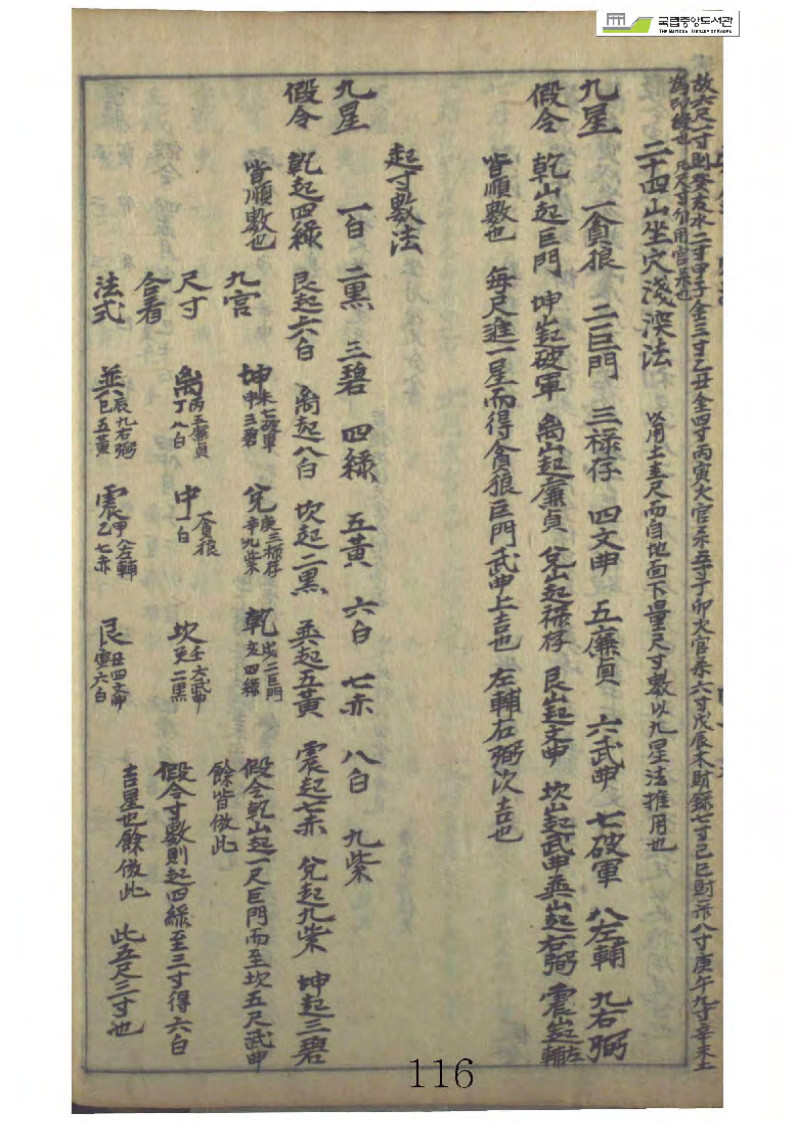 국립중앙도서관
THE NATIONAL LIBRARY OF KOREA
故六尺一寸則癸亥水二寸甲子金三寸乙丑金四寸丙寅火官 五寸丁卯火官 六寸戊辰木財 七寸己巳財 八寸庚午九寸辛未土
爲印綬也
二十四山坐穴淺深法 以用土圭尺而自地面下量尺寸數以九星法推用也
九星 一貪狼 二巨門 三祿存 四文曲 五廉貞 六武曲 七破軍 八左輔 九右弼
假令 乾山起巨門 坤山起破軍 离山起廉貞 兌山起祿存 艮山起文曲 坎山起武曲 巽山起右弼 震山起左輔
皆順數也 每尺進一星而得貪狼巨門武曲上吉也 左輔右弼次吉也
起寸數法
九星 一白 二黑 三碧 四緑 五黃 六白 七赤 八白 九紫
假令 乾起四緑 艮起六白 离起八白 坎起二黑 巽起五黃 震起七赤 兌起九紫 坤起三碧
皆順數也
九宮 坤 未七破軍 申三碧 兌 庚三祿存 辛九紫 乾 戌二巨門 亥四緑 假令乾山起一尺巨門而至坎五尺武曲
餘皆倣此
尺寸 离 丙五廉貞 丁八白 中 一貪狼 一白 坎 壬六武曲 癸二黑 假令寸數則起四緑至三寸得六白
合看 吉星也餘倣此 此五尺三寸也
法式 巽 辰九右弼 巳五黃 震 甲八左輔 乙七赤 艮 丑四文曲 寅六白
116